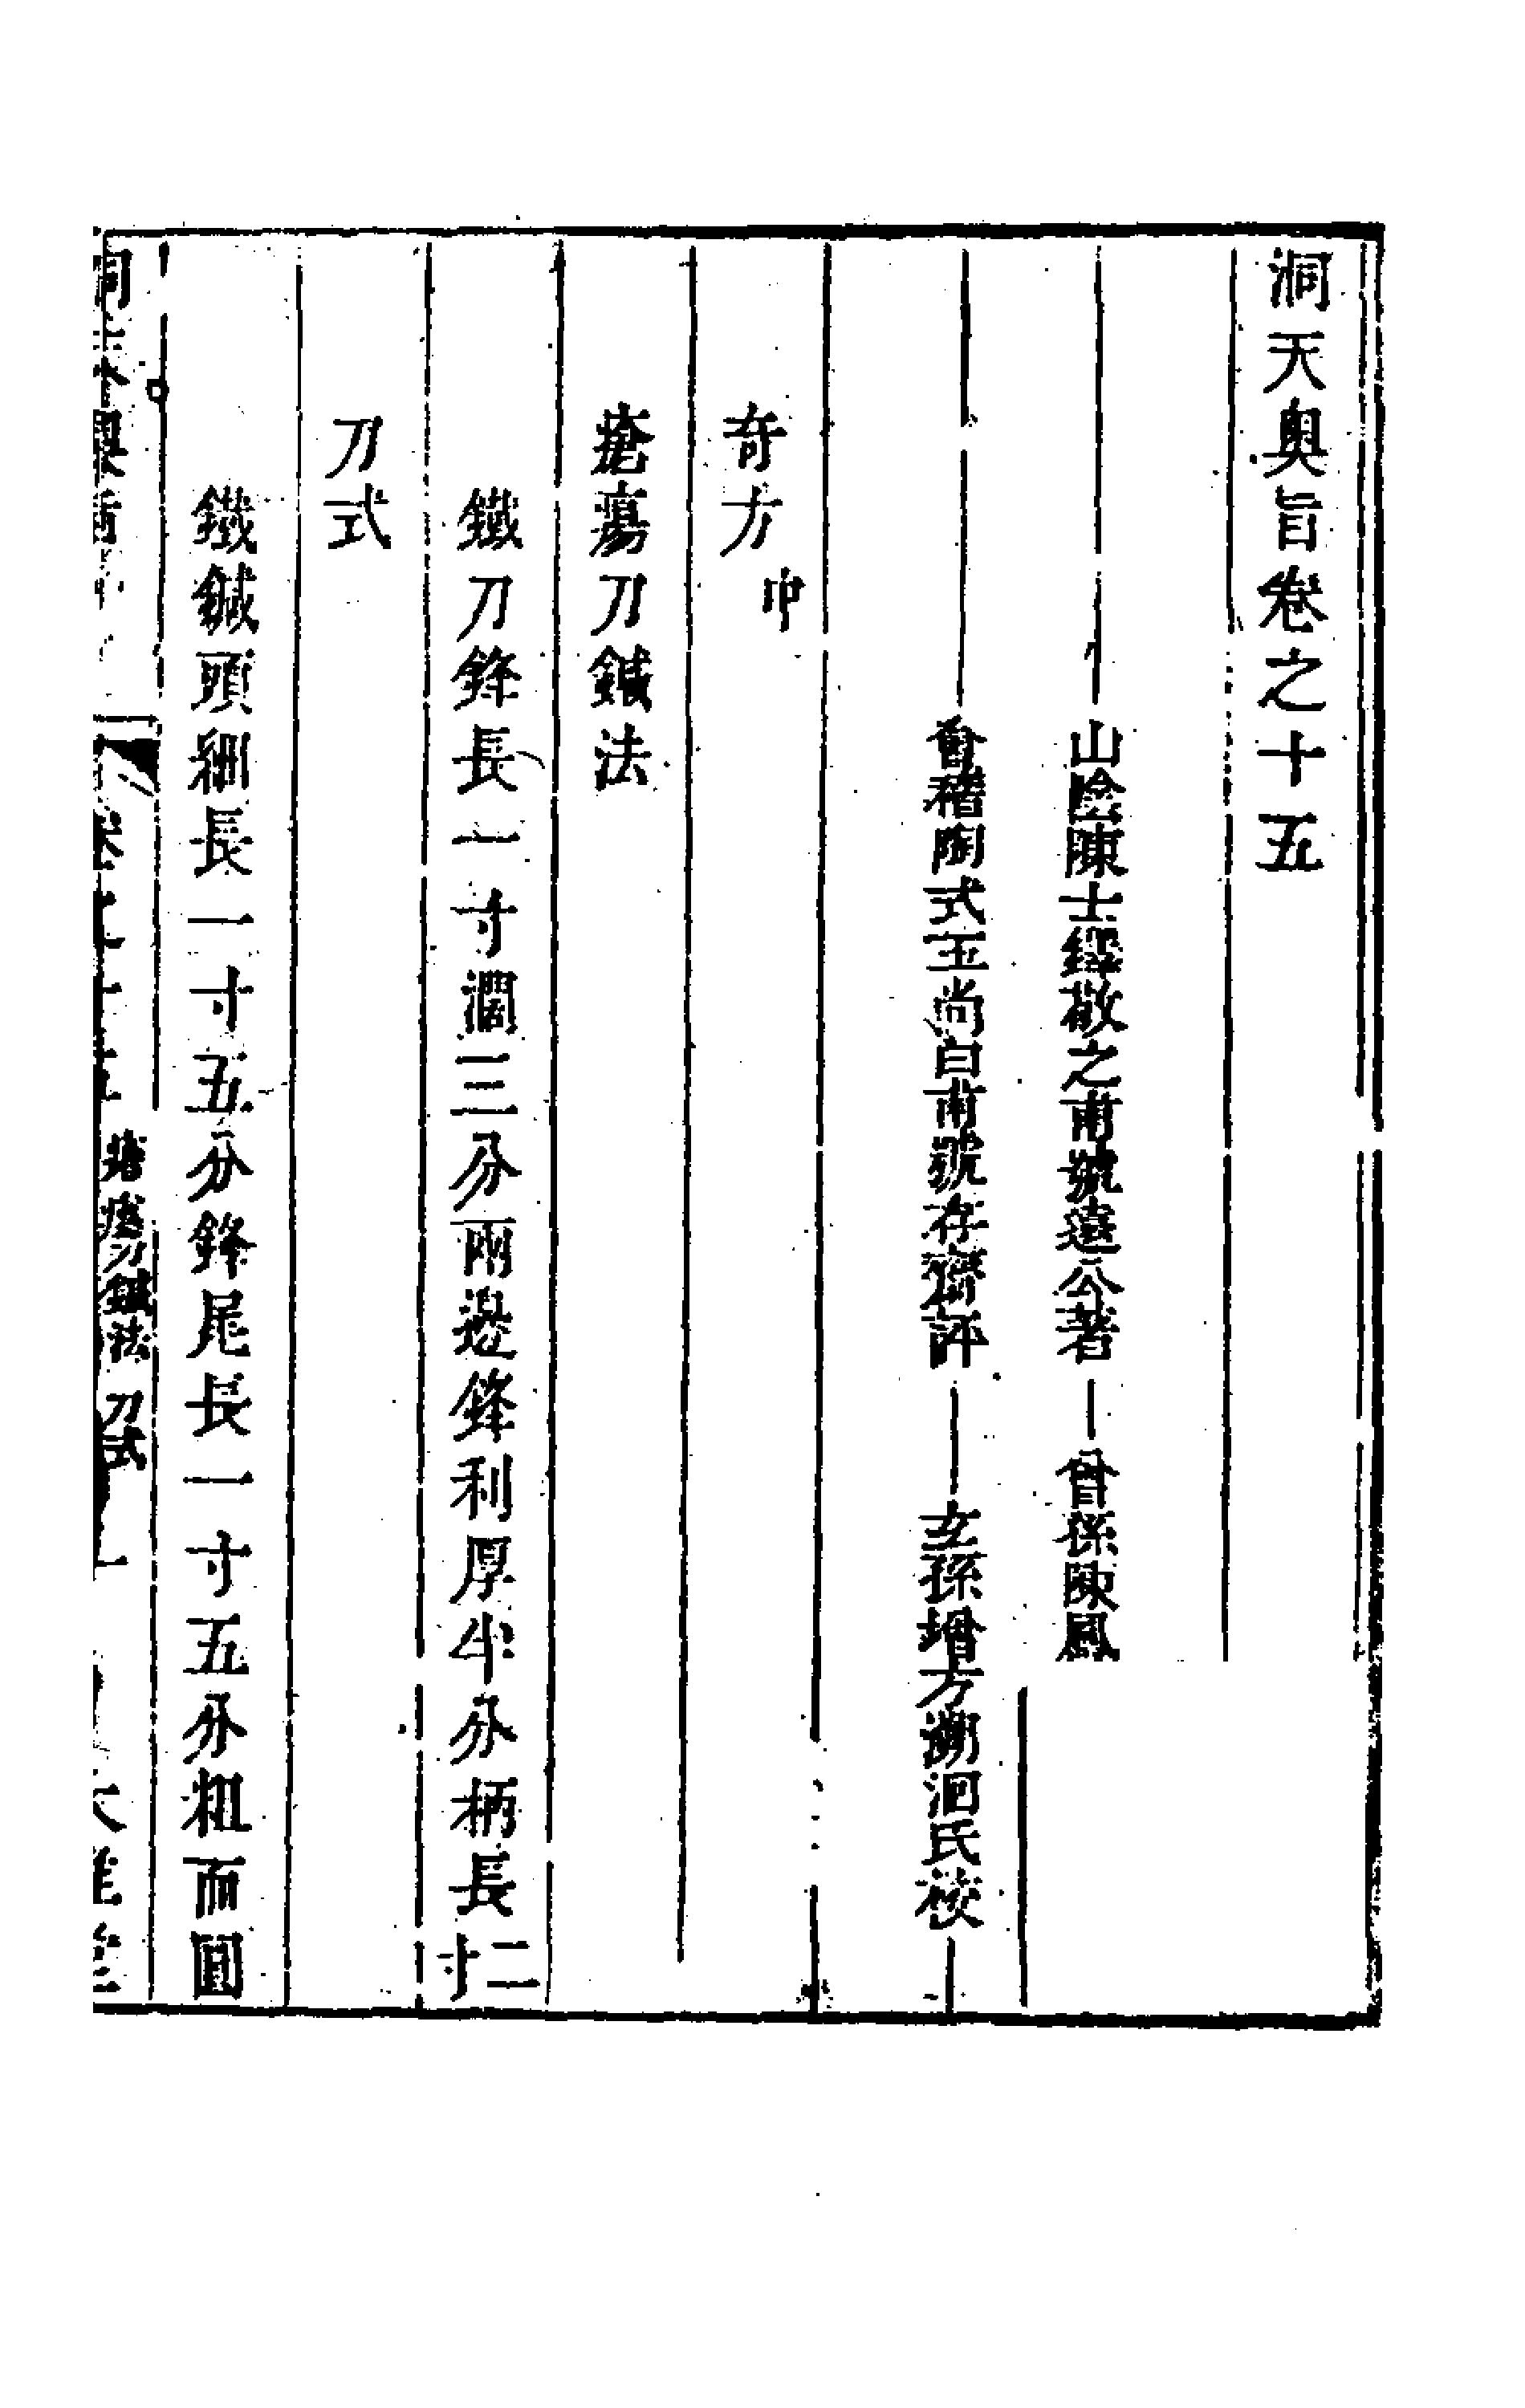 洞天奥旨卷之十五
山陰陳士鐸敬之甫號遠公著 曾孫陳鳳
會稽陶式玉尚白甫號存齋評 玄孫增方灝洄氏校
奇方 中
瘡瘍刀鍼法
鐵刀鋒長一寸濶三分兩邊鋒利厚半分柄長二寸
刀式
鐵鍼頭細長一寸五分鋒尾長一寸五分粗而圓
瘡瘍刀鍼法 刀式